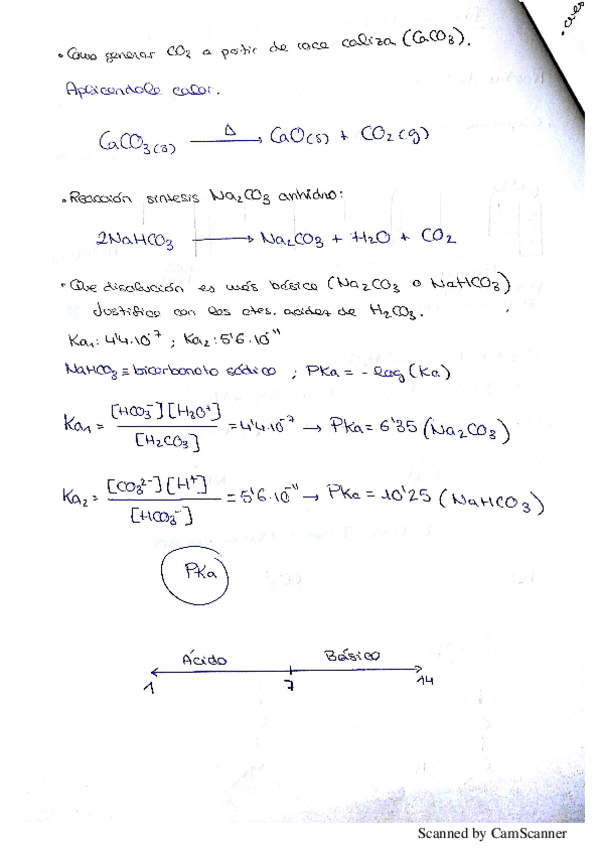 • Como generar CO2 a partir de roca caliza (CaCO3).
Aplicandole calor.
CaCO3(s) —Δ→ CaO(s) + CO2(g)
• Reacción sintesis Na2CO3 anhidro:
2NaHCO3 → Na2CO3 + H2O + CO2
• Que disolución es más básica (Na2CO3 o NaHCO3)
Justifica con las ctes. acidez de H2CO3.
Ka1: 4'4·10^-7 ; Ka2: 5'6·10^-11
NaHCO3 ≡ bicarbonato sódico ; PKa = -log(Ka)
Ka1 = [HCO3^-][H3O^+] / [H2CO3] = 4'4·10^-7 → PKa = 6'35 (Na2CO3)
Ka2 = [CO3^2-][H^+] / [HCO3^-] = 5'6·10^-11 → PKa = 10'25 (NaHCO3)
PKa
Ácido Básico
1 7 14
Scanned by CamScanner